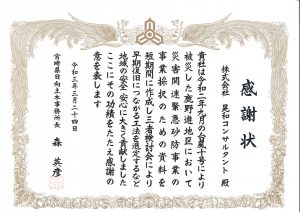 感謝状
株式会社 晃和コンサルタント 殿
貴社は令和二年九月の台風十号により
被災した鹿野遊地区において
災害関連緊急砂防事業の
事業採択のための資料を
短期間に作成し三者検討会により
早期復旧につながる工法を選定するなど
地域の安全・安心に大きく貢献しました
ここにその功績をたたえ感謝の
意を表します
令和三年三月二十四日
宮崎県日向土木事務所長 森 英彦